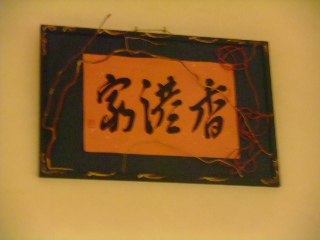 香港家